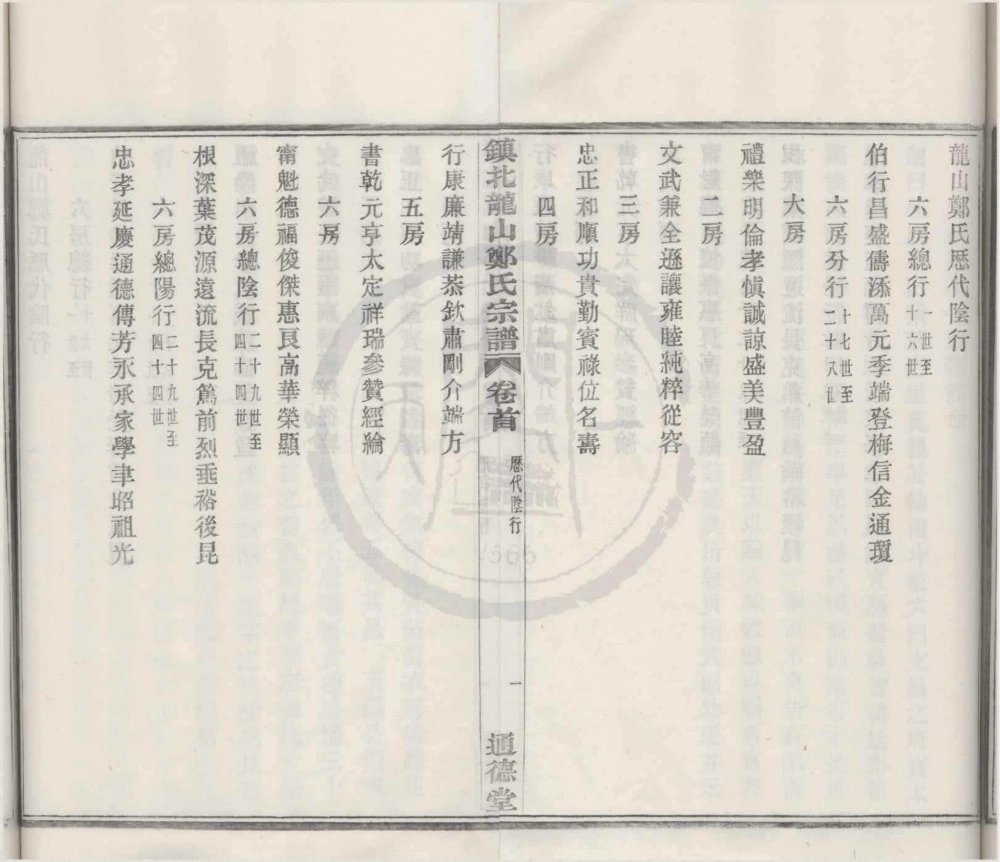 龍山鄭氏歷代陰行
六房總行一世至十六世
伯行昌盛儔添萬元季端登梅信金通瓊
六房分行十七世至二十八世
大房
禮樂明倫孝慎誠諒盛美豐盈
二房
文武兼全遜讓雍睦純粹從容
三房
忠正和順功貴勤賓祿位名壽
四房
鎮北龍山鄭氏宗譜 卷首 歷代陰行 一 通德堂
行康廉靖謙恭欽肅剛介端方
五房
書乾元亨太定祥瑞參贊經綸
六房
甯魁德福俊傑惠良高華榮顯
六房總陰行二十九世至四十四世
根深葉茂源遠流長克篤前烈垂裕後昆
六房總陽行二十九世至四十四世
忠孝延慶通德傳芳永承家學聿昭祖光